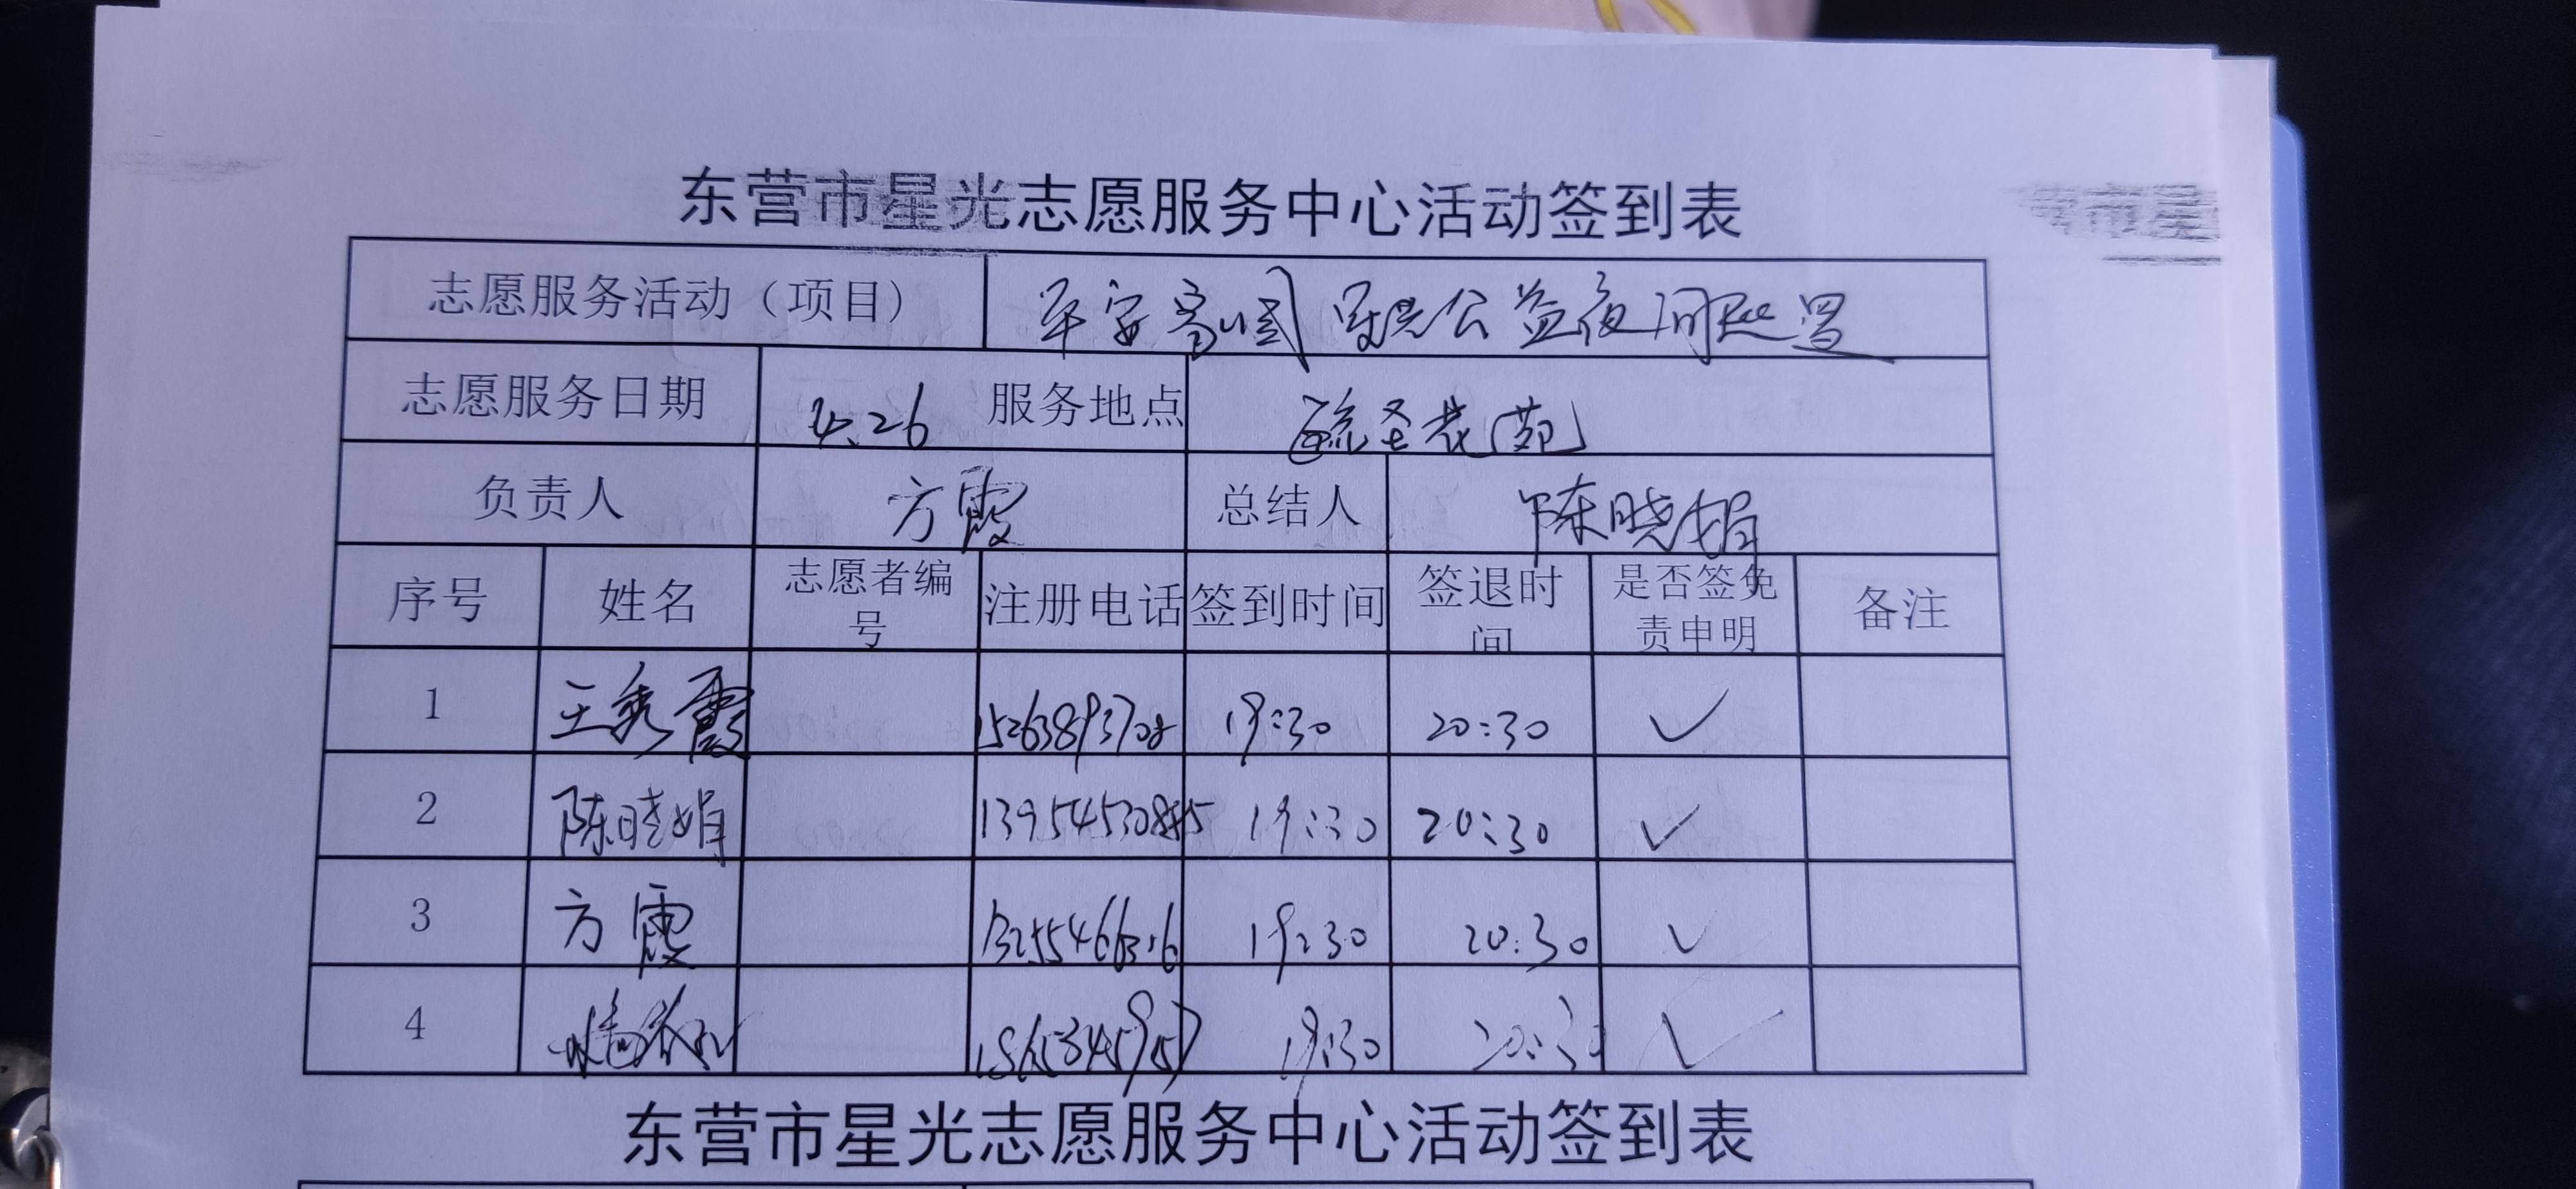 东营市星光志愿服务中心活动签到表
志愿服务活动（项目） 平安 公益夜间巡逻
志愿服务日期 4.26 服务地点
负责人 方霞 总结人 陈晓娟
序号 姓名 志愿者编号 注册电话 签到时间 签退时间 是否签免责申明 备注
1 王秀霞 15263893708 19:30 20:30 ✓
2 陈晓娟 19:30 20:30 ✓
3 方霞 19:30 20:30 ✓
4 19:30 20:30 ✓
东营市星光志愿服务中心活动签到表
市星